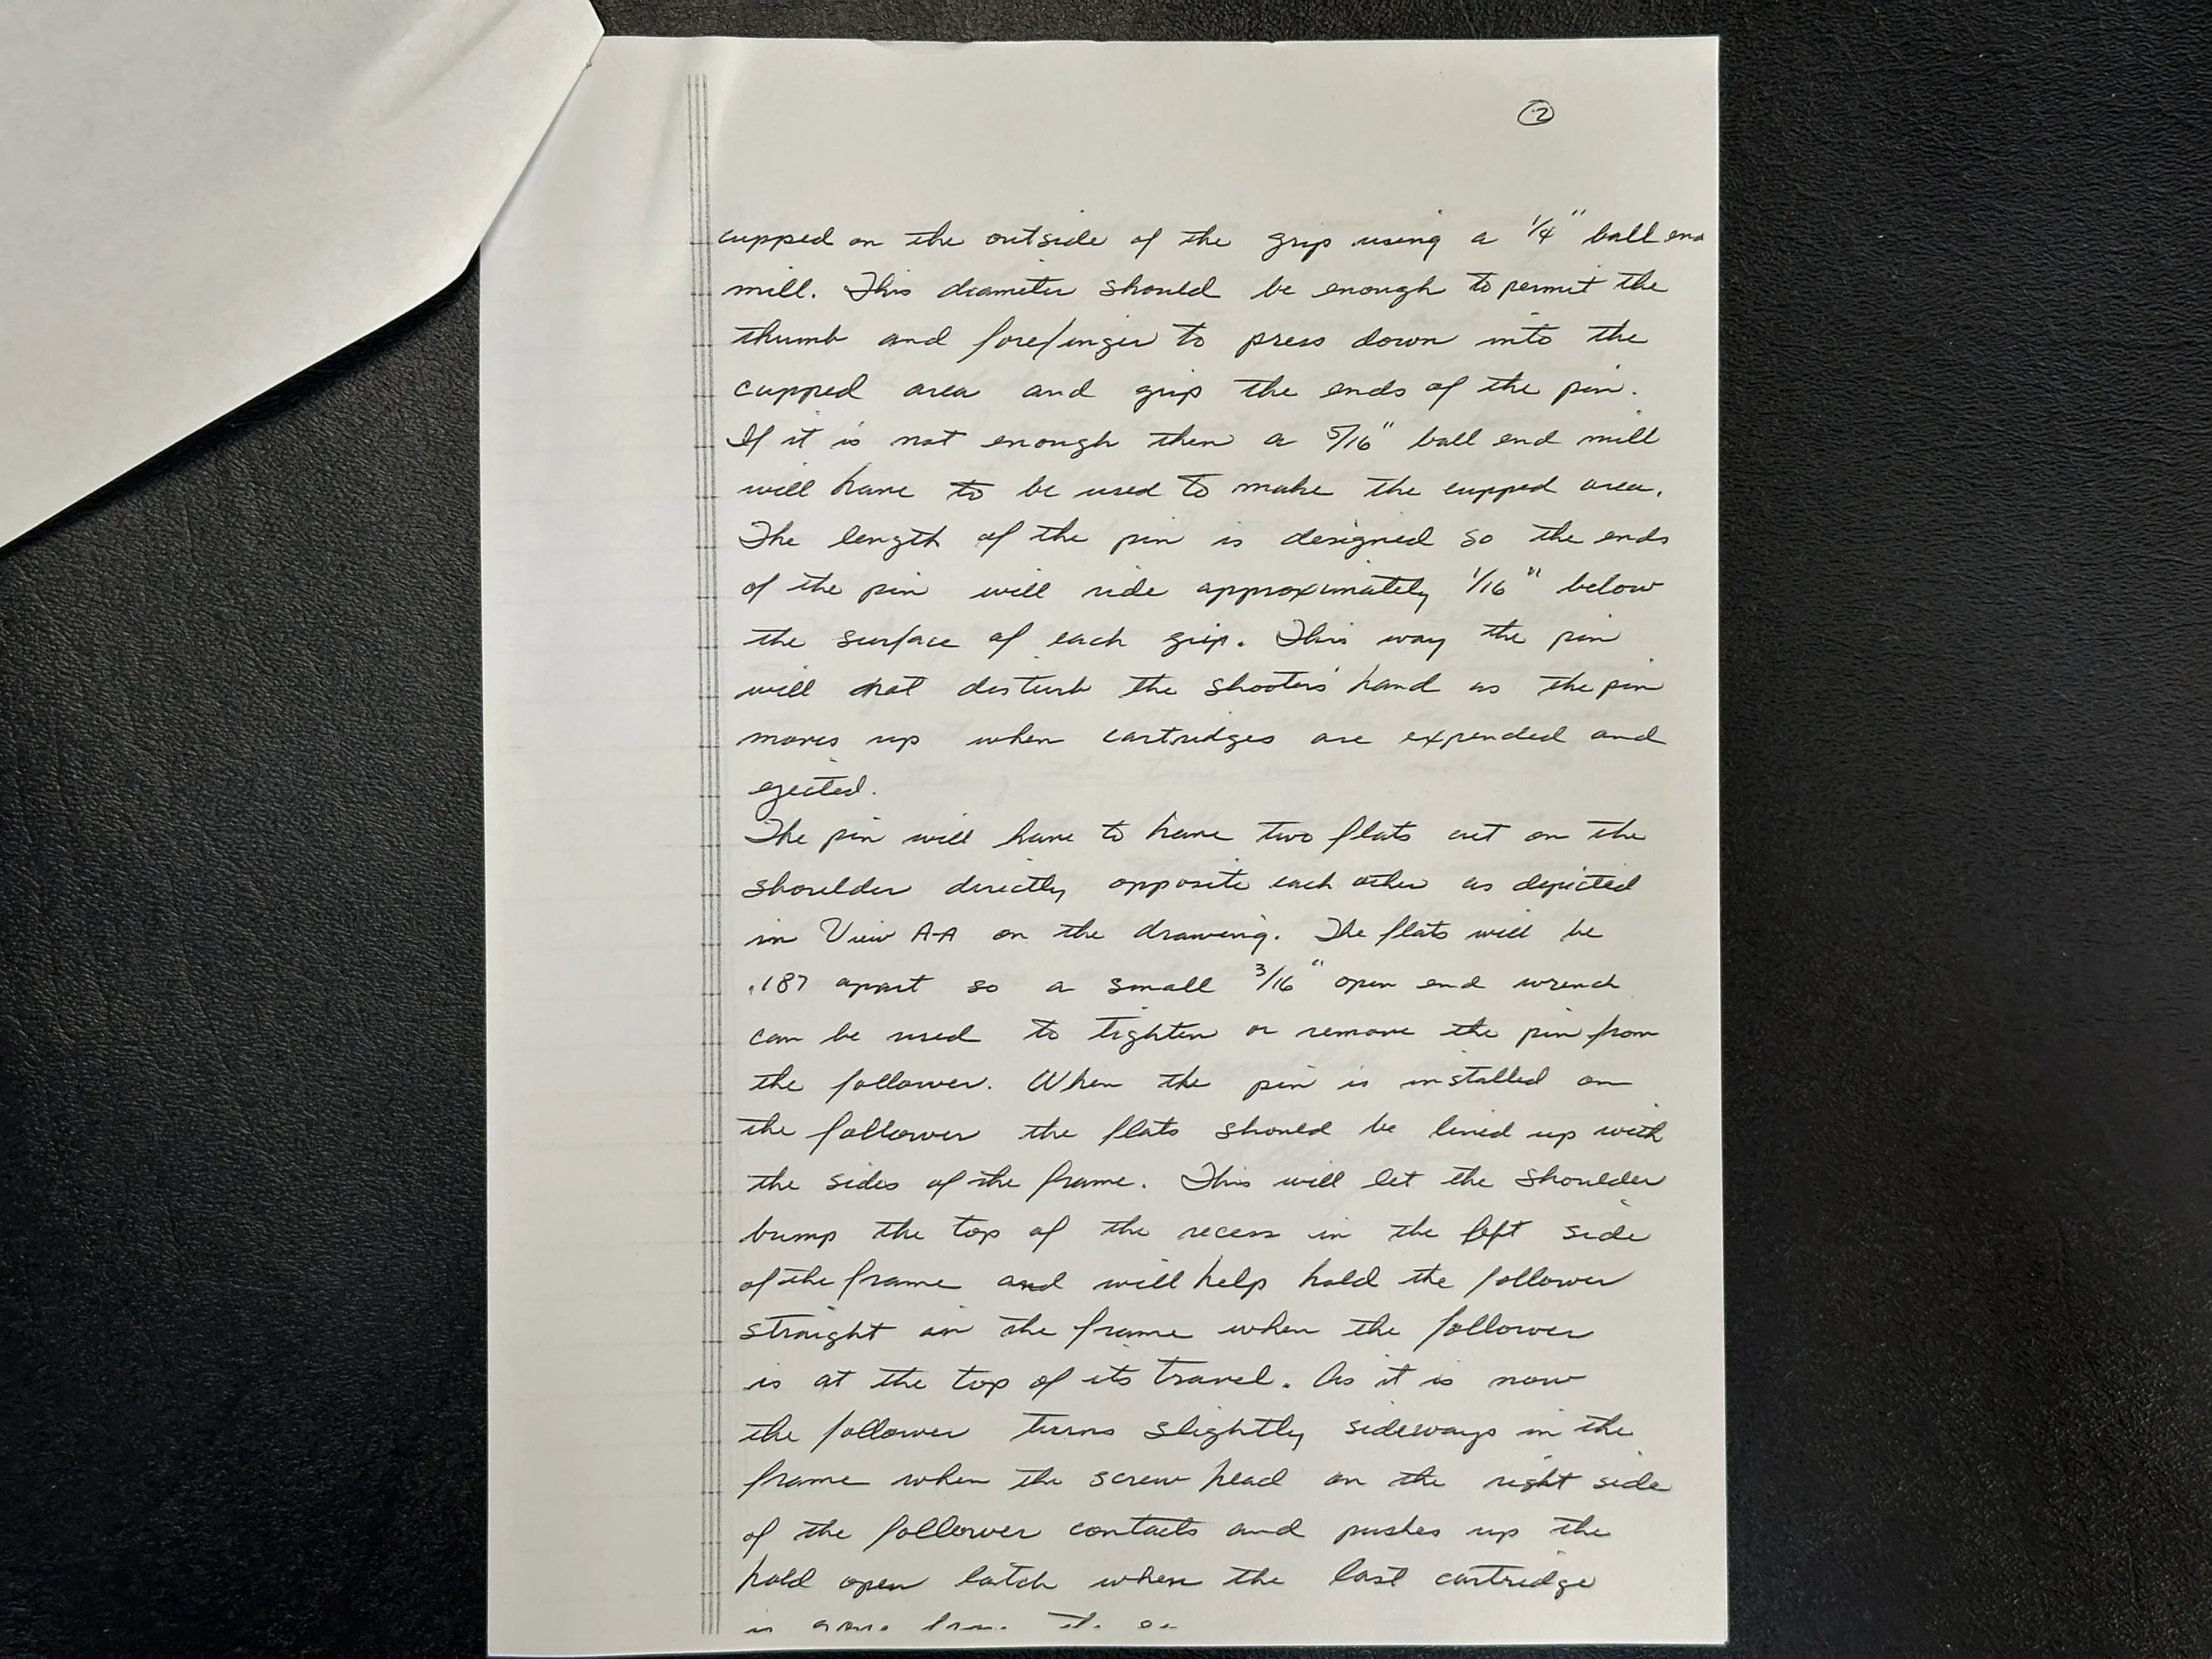 2
cupped on the outside of the grip using a 1/4" ball end
mill. This diameter should be enough to permit the
thumb and forefinger to press down into the
cupped area and grip the ends of the pin.
If it is not enough then a 5/16" ball end mill
will have to be used to make the cupped area.
The length of the pin is designed so the ends
of the pin will ride approximately 1/16" below
the surface of each grip. This way the pin
will not disturb the shooters' hand as the pin
moves up when cartridges are expended and
ejected.
The pin will have to have two flats cut on the
shoulder directly opposite each other as depicted
in View A-A on the drawing. The flats will be
.187 apart so a small 3/16" open end wrench
can be used to tighten or remove the pin from
the follower. When the pin is installed on
the follower the flats should be lined up with
the sides of the frame. This will let the shoulder
bump the top of the recess in the left side
of the frame and will help hold the follower
straight in the frame when the follower
is at the top of its travel. As it is now
the follower turns slightly sideways in the
frame when the screw head on the right side
of the follower contacts and pushes up the
hold open latch when the last cartridge
is